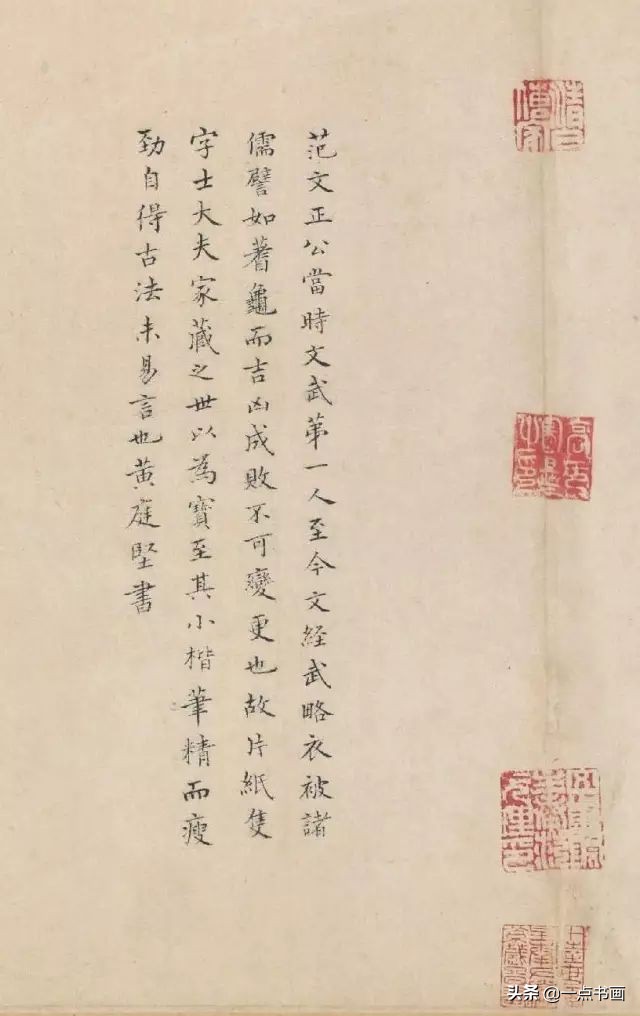 范文正公當時文武第一人至今文經武略衣被諸
儒譬如蓍龜而吉凶成敗不可變更也故片紙隻
字士大夫家藏之世以為寶至其小楷筆精而瘦
勁自得古法未易言也黄庭堅書
头条 @一点书画